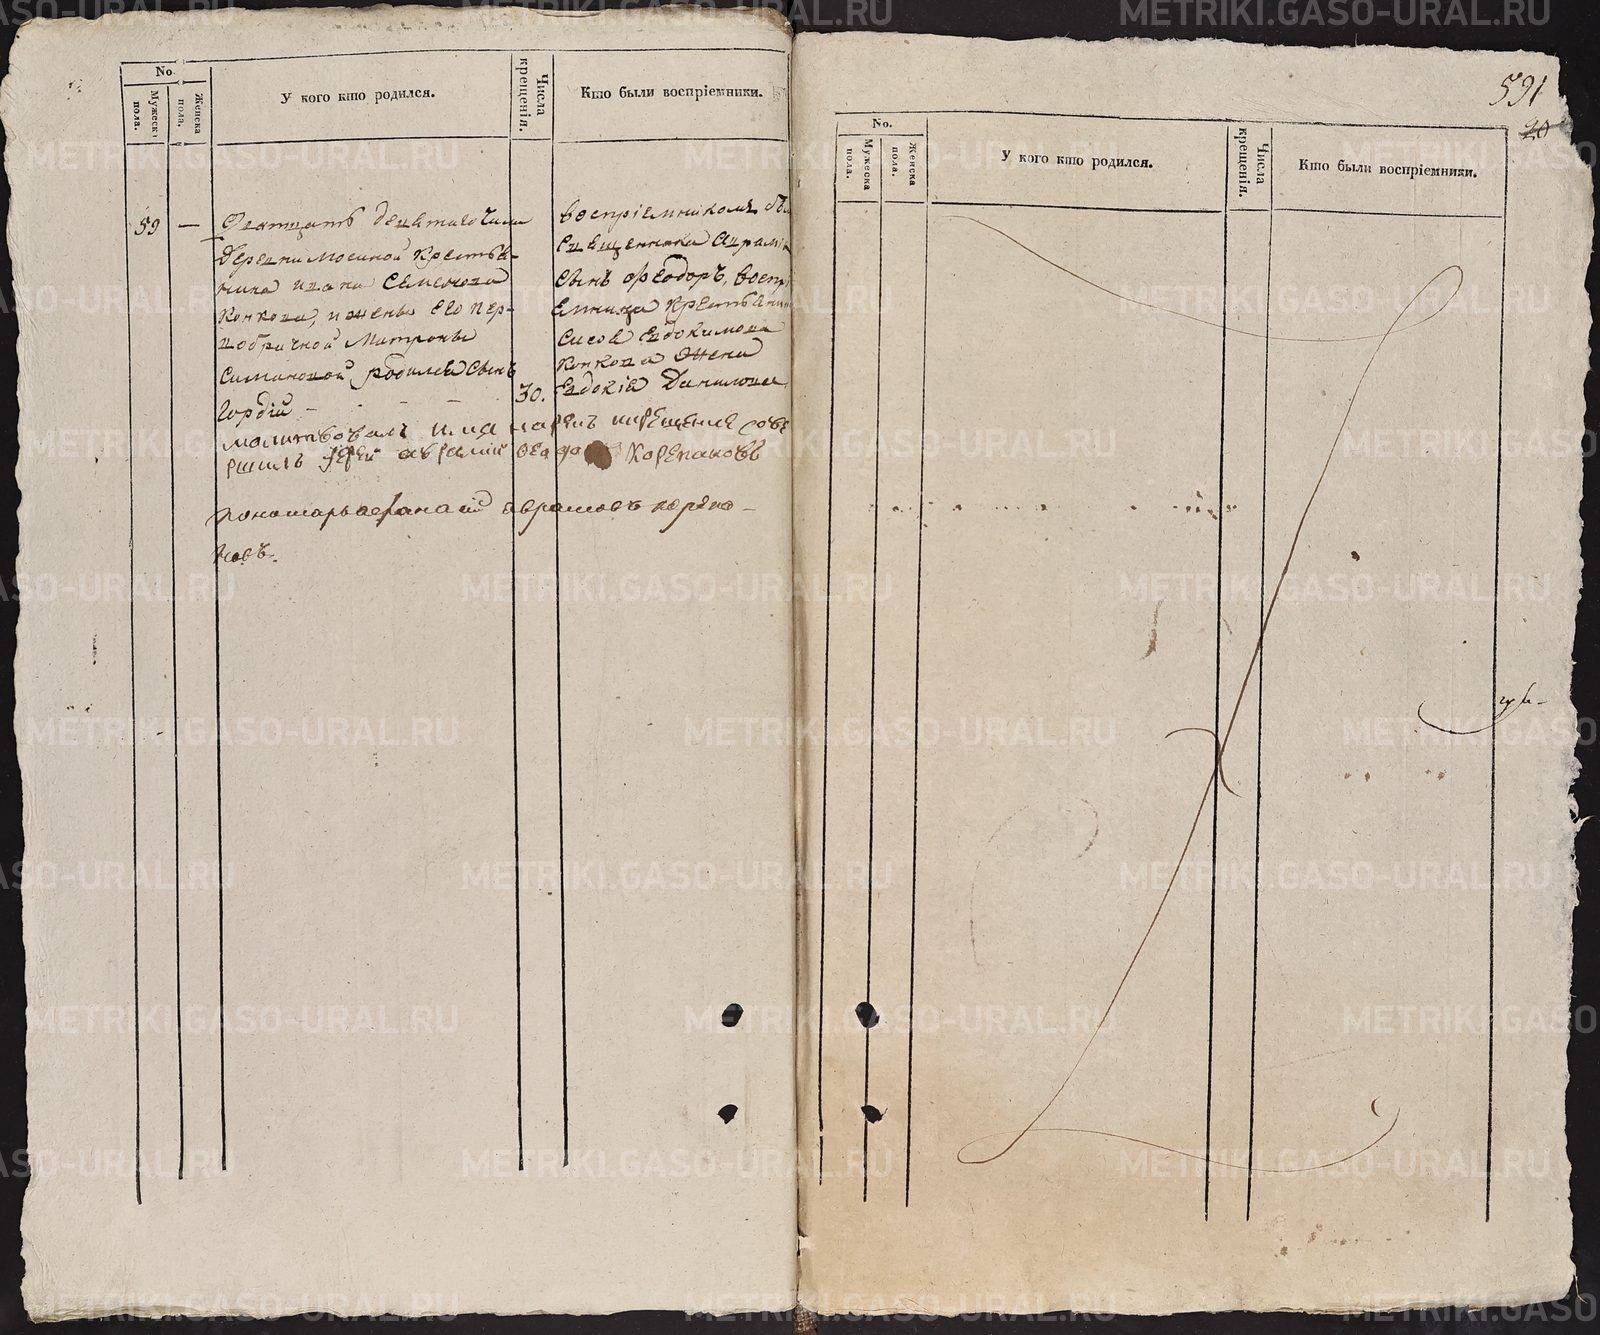 No.
Мужеска пола.
Женска пола.
У кого кто родился.
Числа крещенія.
Кто были воспріемники.
59 —
Дватцать девятаго числа
Деревни Мосиной Крестья-
нина ивана Семенова
Конкова, и жены его пер-
вобрачной Матроны
Симановой родился сынъ
Гордій - - - - 30.
воспріемникомъ
священника Аврамія
сынъ Феодоръ, воспрі
емница Крестьянина
Сисоя Евдокимова
Конкова Жена
Евдокія Данилова
молитвовалъ имя нарекъ икрещение сове
ршилъ Иерей аврамий Корепановъ
пономарь афанасий аврамовъ корепа-
новъ.
591
20
No.
Мужеска пола.
Женска пола.
У кого кто родился.
Числа крещенія.
Кто были воспріемники.
METRIKI.GASO-URAL.RU